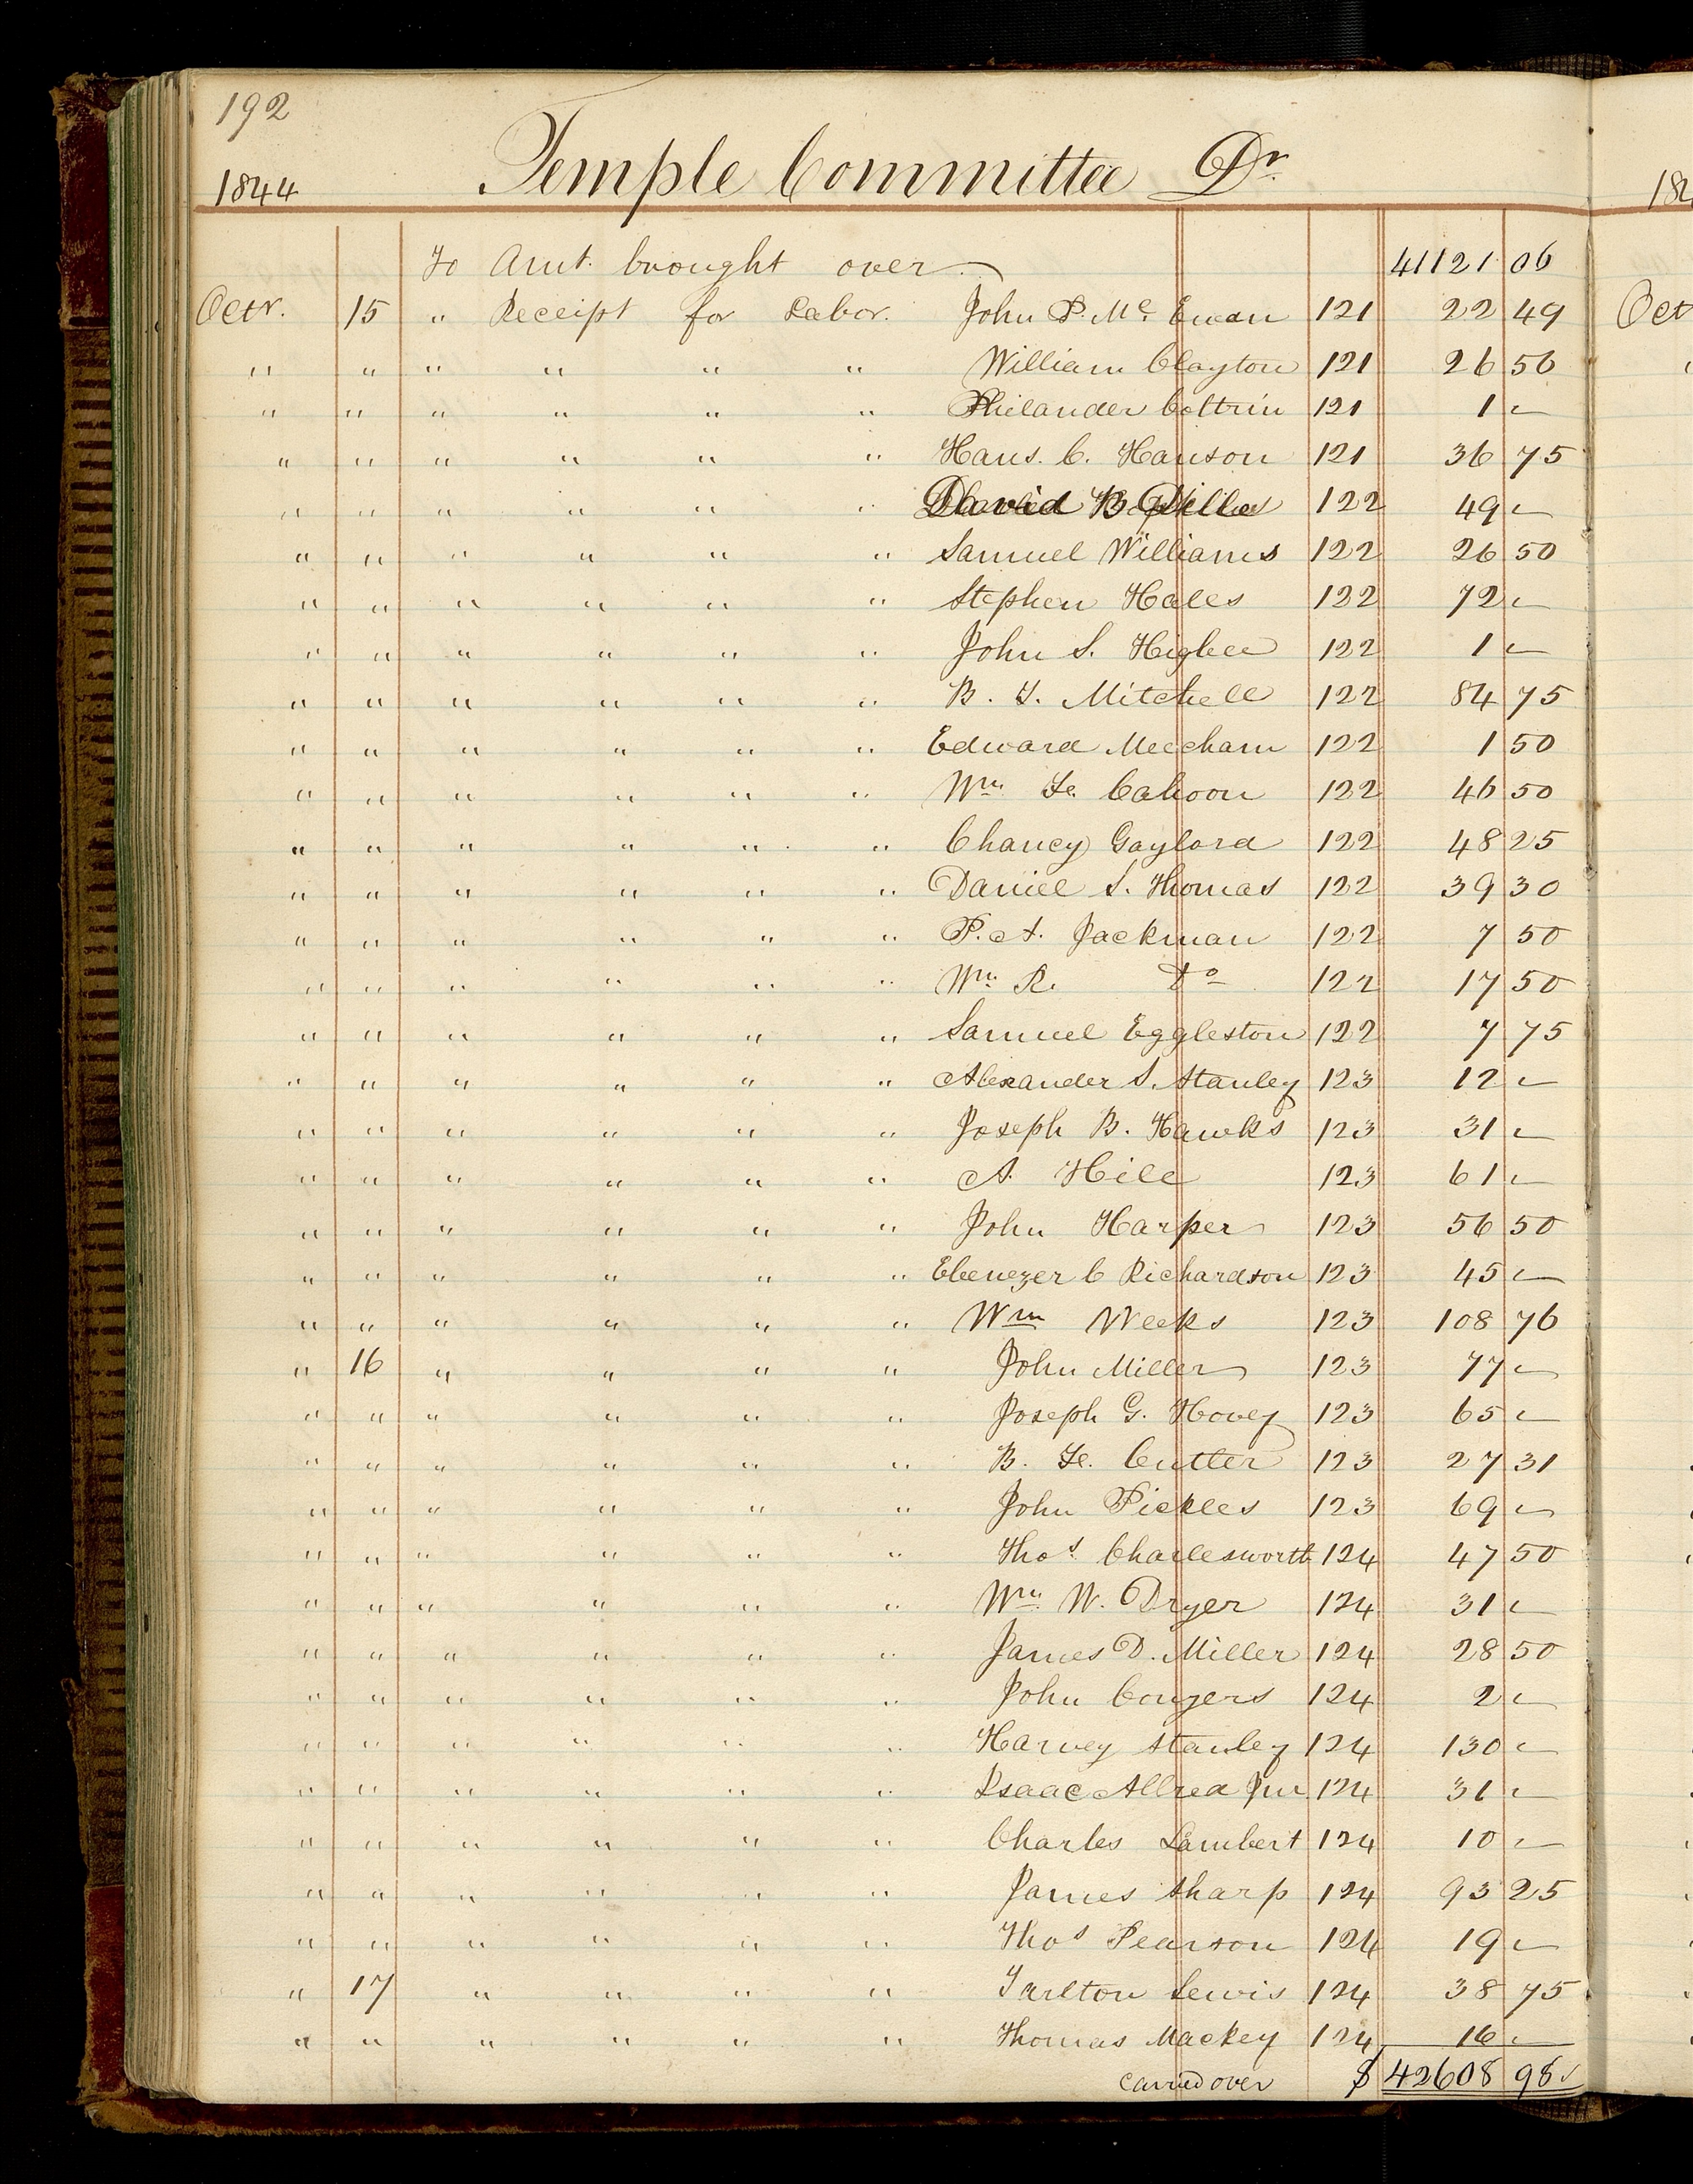 192
1844 Temple Committee Dr. 184
To Amt. brought over 41121 06
Octr. 15 " Receipt for Labor. John P. Mc. Ewan 121 22 49 Oct
" " " " " " William Clayton 121 26 50
" " " " " " Philander Coltrin 121 1 –
" " " " " " Hans. C. Hanson 121 36 75
" " " " " " David B Dille 122 49 –
" " " " " " Samuel Williams 122 26 50
" " " " " " Stephen Hales 122 72 –
" " " " " " John S. Higbee 122 1 –
" " " " " " B. T. Mitchell 122 84 75
" " " " " " Edward Meecham 122 1 50
" " " " " " Wm. F. Cahoon 122 46 50
" " " " " " Chancy Gaylord 122 48 25
" " " " " " Daniel S. Thomas 122 39 30
" " " " " " P. A. Jackman 122 7 50
" " " " " " Wm. R. Do 122 17 50
" " " " " " Samuel Eggleston 122 7 75
" " " " " " Alexander S. Stanley 123 12 –
" " " " " " Joseph B. Hawks 123 31 –
" " " " " " A. Hill 123 61 –
" " " " " " John Harper 123 56 50
" " " " " " Ebenezer C Richardson 123 45 –
" " " " " " Wm Weeks 123 108 76
" 16 " " " " John Miller 123 77 –
" " " " " " Joseph G. Hovey 123 65 –
" " " " " " B. F. Cutler 123 27 31
" " " " " " John Pickles 123 69 –
" " " " " " Thos. Charlesworth 124 47 50
" " " " " " Wm. W. Dryer 124 31 –
" " " " " " James D. Miller 124 28 50
" " " " " " John Conyers 124 2 –
" " " " " " Harvey Stanley 124 130 –
" " " " " " Isaac Allred Jun 124 31 –
" " " " " " Charles Lambert 124 10 –
" " " " " " James Sharp 124 93 25
" " " " " " Thos Pearson 124 19 –
" 17 " " " " Tarlton Lewis 124 38 75
" " " " " " Thomas Mackey 124 16 –
carried over $ 42608 98